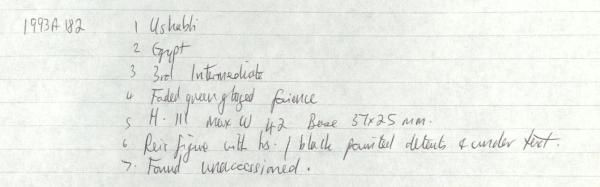 1993A182 1 Ushabti
2 Egypt
3 3rd Intermediate
4 Faded green glazed faience
5 H. 111 Max W 42 Base 37x25 mm.
6 Reis figure with hs. / black painted details & under text.
7. Found unaccessioned.